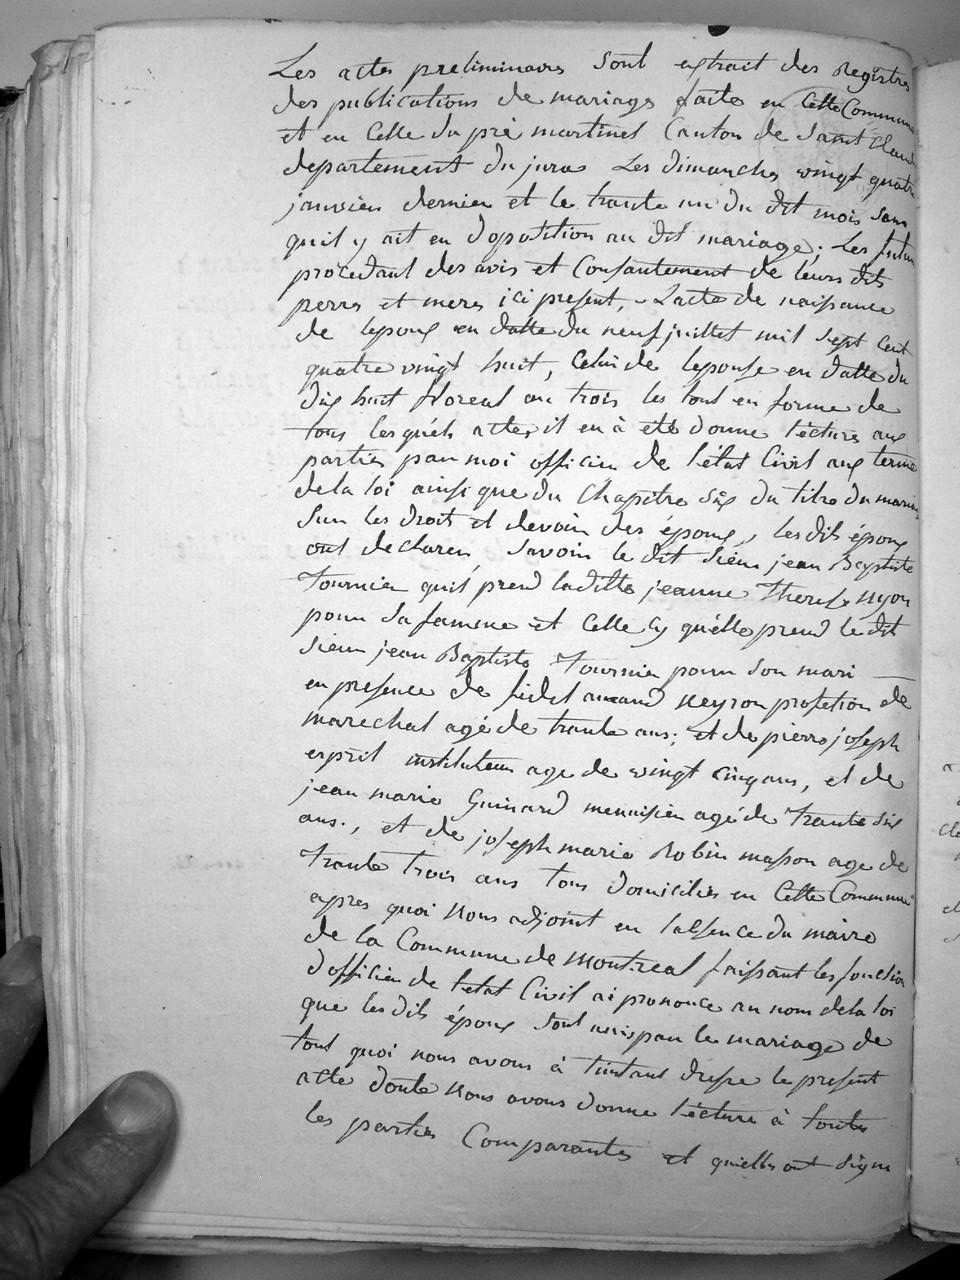 Les actes preliminaires sont extrait des Registres
des publications de mariage faites en Cette Commune
et en Celle du pré martinet Canton de Saint Claude
departement du jura Les dimanches wingt quatre
janvier dernier et le trante un du dit mois sans
quil y ait eu dopotition au dit mariage; Les futur
procedant des avis et Consantement de leurs dits
perres et meres ici present, Lacte de naissance
de lepoux en datte du neuf juillet mil sept cent
quatre vingt huit, Celui de lepouse en datte du
dix huit floreal an trois les tout en forme de
tous lesquels actes il en à eté donne lécture aux
parties par moi officier de létat Civil aux terme
de la loi ainsi que du Chapitre six du titre du mariage
Sur les droit et devoir des époux, les dits époux
ont declarer Savoir le dit Sieur jean Baptiste
Tournier quil prend laditte jeanne Therese nyon
pour Sa famme et Celle Cy quélle prend le dit
Sieur jean Baptiste Tournier pour Son mari
en presence de fidel amand neyron profetion de
marechal agé de trante ans; et de pierre joseph
esprit instituteur age de wingt cinq ans, et de
jean marie Guinard menuisier agé de trante six
ans., et de joseph marie Robin masson age de
trante trois ans tous domiciliés en Cette Commune
apres quoi nous adjoint en labsence du maire
de la Commune de montreal faissant les fonction
dofficier de létat Civil ai prononce au nom de la loi
que les dits époux sont unis par le mariage de
tout quoi nous avons à linstant dresse le present
acte donte nous avons donne lécture à toutes
les parties Comparantes et quelles ont signe